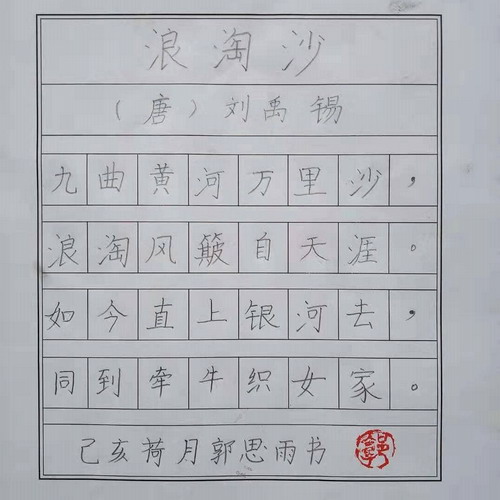 浪淘沙
（唐）刘禹锡
九曲黄河万里沙，
浪淘风簸自天涯。
如今直上银河去，
同到牵牛织女家。
己亥荷月郭思雨书